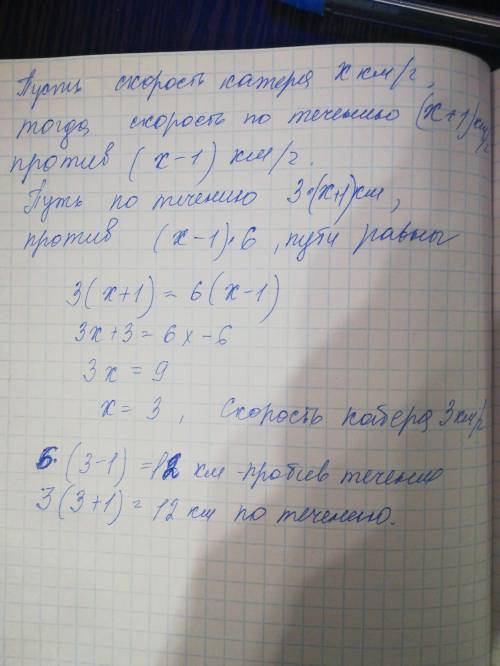 Пусть скорость катера x км/г,
тогда скорость по течению (x+1)км/г
против (x-1) км/г.
Путь по течению 3·(x+1)км,
против (x-1)·6, пути равны
3(x+1) = 6(x-1)
3x+3 = 6x-6
3x = 9
x = 3, Скорость катера 3км/г
6·(3-1) = 12 км -против течение
3(3+1) = 12 км по течению.